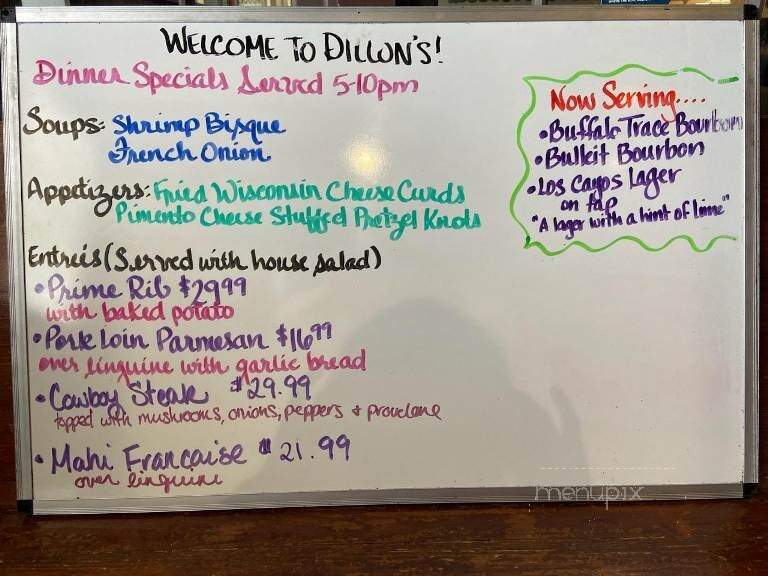 WELCOME TO DILLON'S!
Dinner Specials Served 5-10pm
Soups: Shrimp Bisque
French Onion
Appetizers: Fried Wisconsin Cheese Curds
Pimento Cheese Stuffed Pretzel Knots
Entreés (Served with house salad)
•Prime Rib $29.99
with baked potato
•Pork Loin Parmesan $16.99
over linguine with garlic bread
•Cowboy Steak $29.99
topped with mushrooms, onions, peppers + provolone
•Mahi Francaise $21.99
over linguine
Now Serving....
•Buffalo Trace Bourbon
•Bulleit Bourbon
•Los Cayos Lager
on tap
"A lager with a hint of lime"
menupix